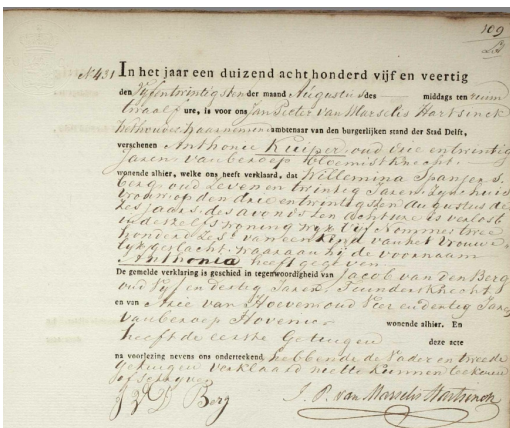 109
N 431 In het jaar een duizend acht honderd vijf en veertig
den Vyfentwintigsten der maand Augustus des middags ten
twaalf ure, is voor ons Jan Pieter van Marselis Hartsinck
Wethouder, waarnemend ambtenaar van den burgerlijken stand der Stad Delft,
verschenen Anthonie Kuiper, oud Drie en twintig
Jaren, van beroep Bloemist Knecht
wonende alhier, welke ons heeft verklaard, dat Willemina Spanjers
berg, oud Zeven en twintig Jaren, Zyn huis
vrouw, op den drie en twintigsten Augustus de
zes jaars, des avonds ten acht ure is verlost
in dezelfs woning wyk Vyf Nommer twee
honderd zes, van een Kind van het Vrouwe
lyk geslacht, waaraan hy de voornaam
Anthonia heeft gegeven
De gemelde verklaring is geschied in tegenwoordigheid van Jacob van den Berg
oud Vyf en dertig Jaren, Tuinders Knecht
en van Arie van Hoeven oud Vier en dertig Jaren
van beroep Hovenier wonende alhier. En
heeft de eerste Getuigen deze acte
na voorlezing nevens ons onderteekend, hebbende de Vader en tweede
getuigen verklaard niet te kunnen teekenen
of schryven
J V D Berg J. P. van Marselis Hartsinck